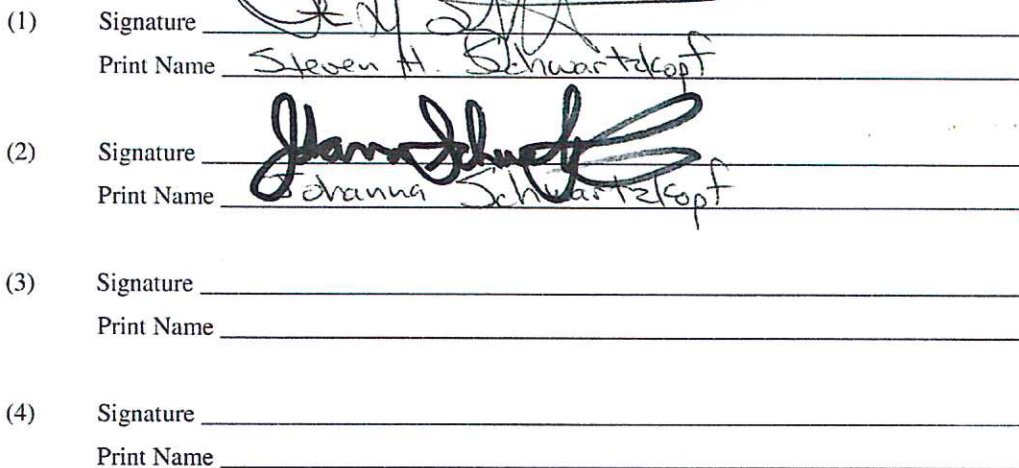 (1) Signature
Print Name Steven H. Schwartzkopf
(2) Signature Johanna Schwartzkopf
Print Name Johanna Schwartzkopf
(3) Signature
Print Name
(4) Signature
Print Name